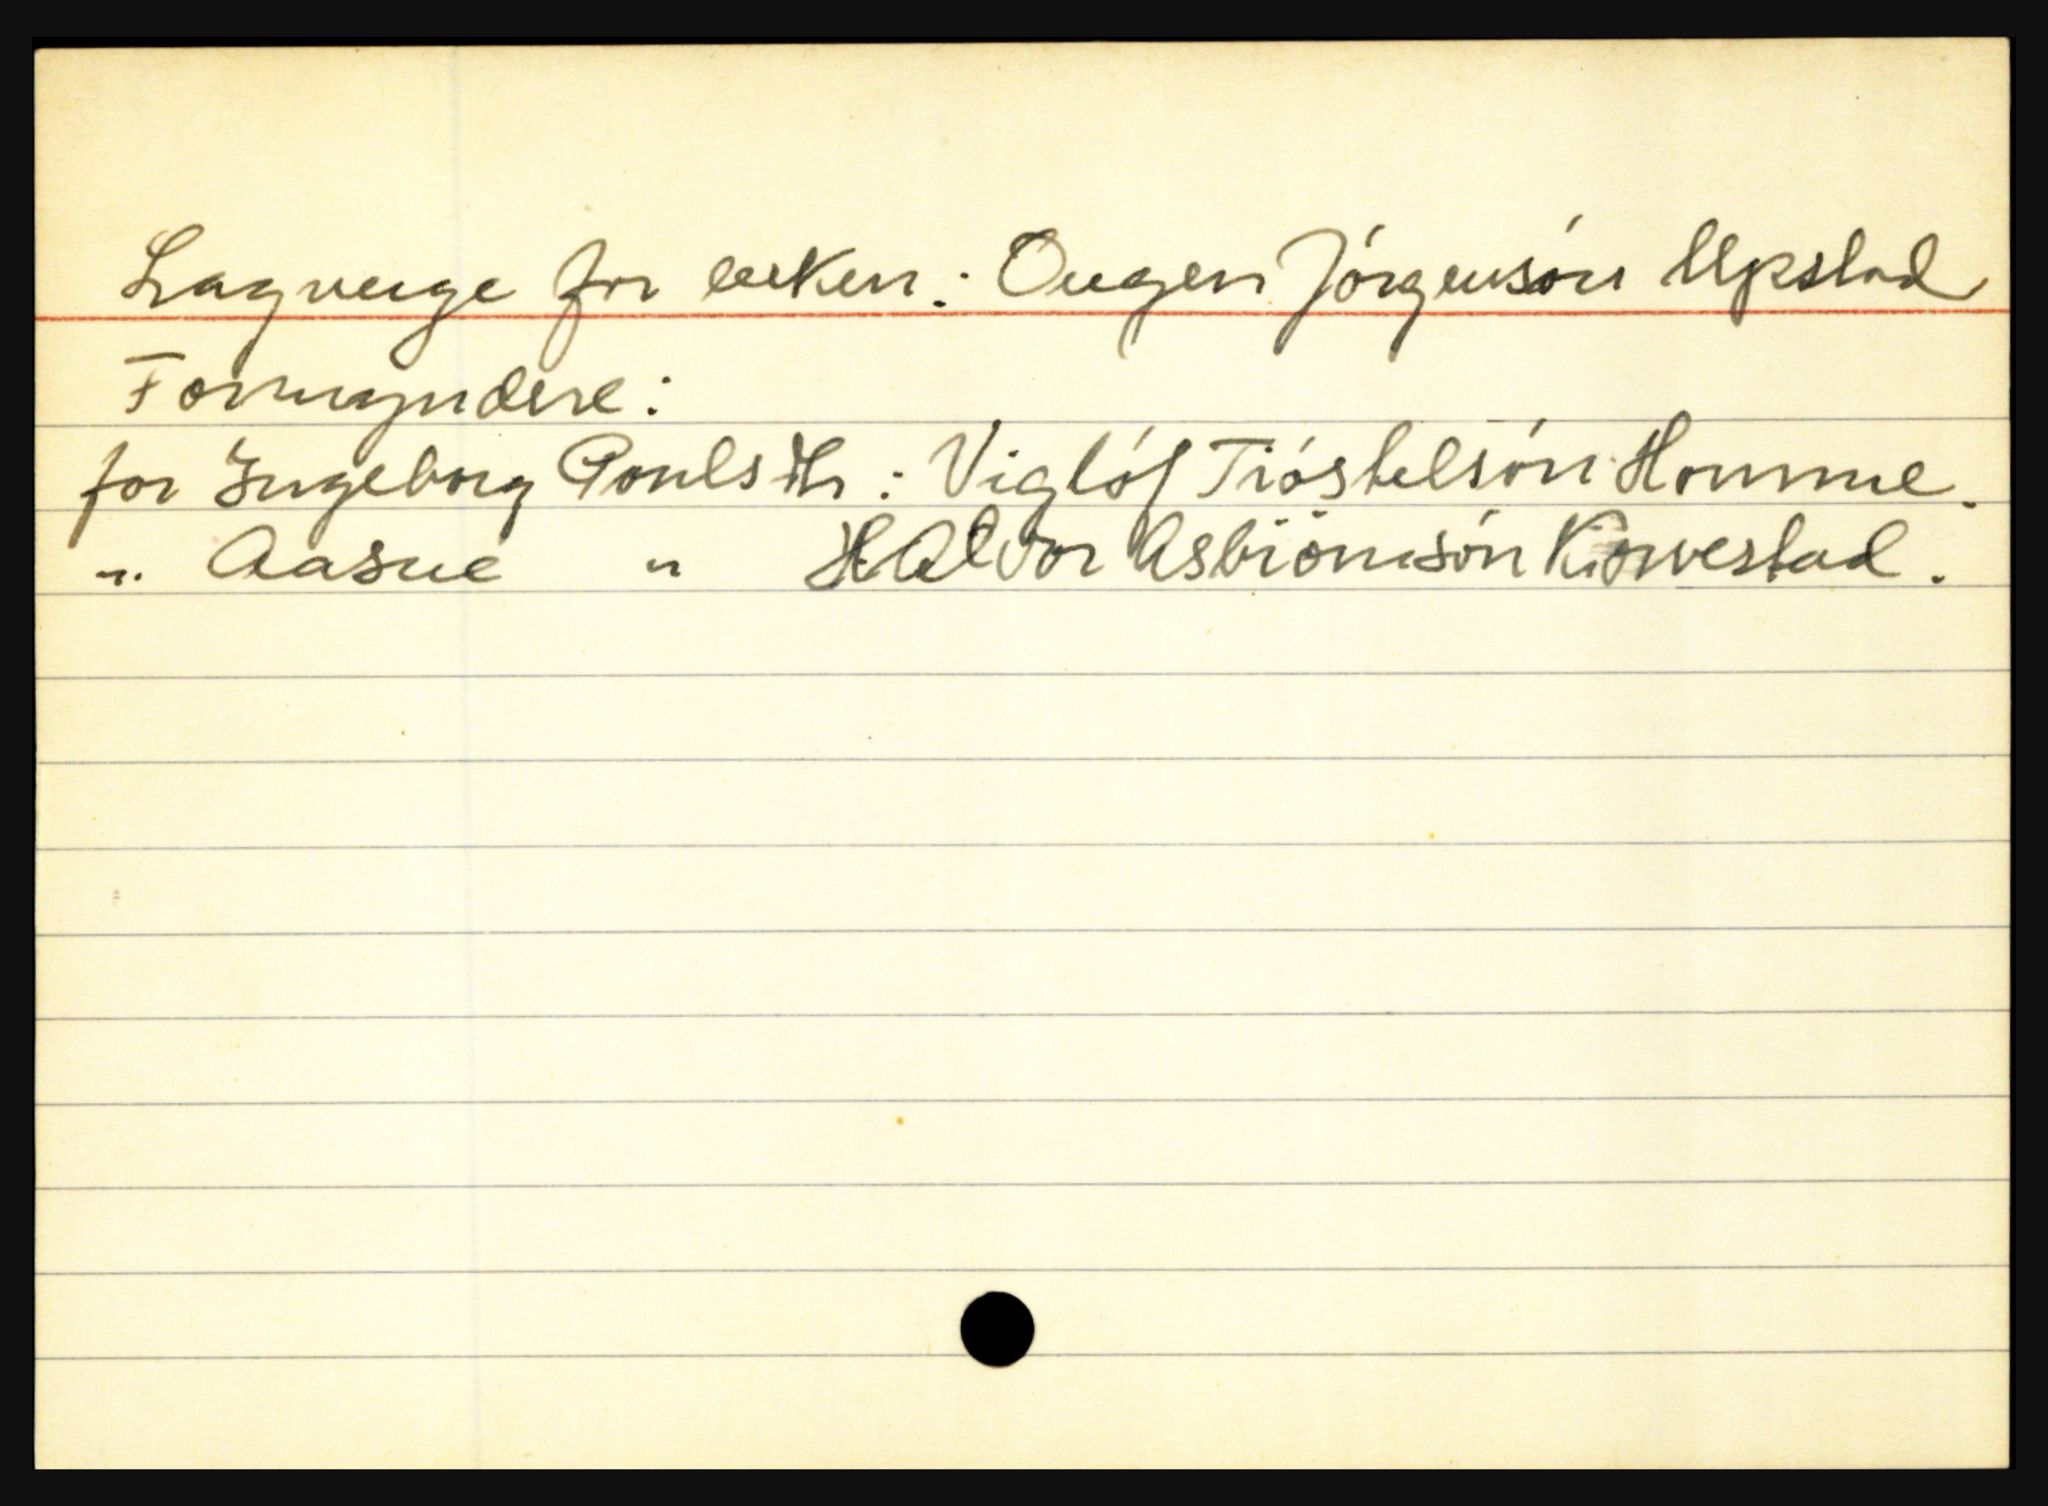 Lagverge for enken: Ougen Jórgensón Upstad
Formyndere:
for Ingeborg Poulsdtr: Viglóf Tióstelsón Homme.
" Aasne " Halvor Asbiörnsón Kiørvestad.